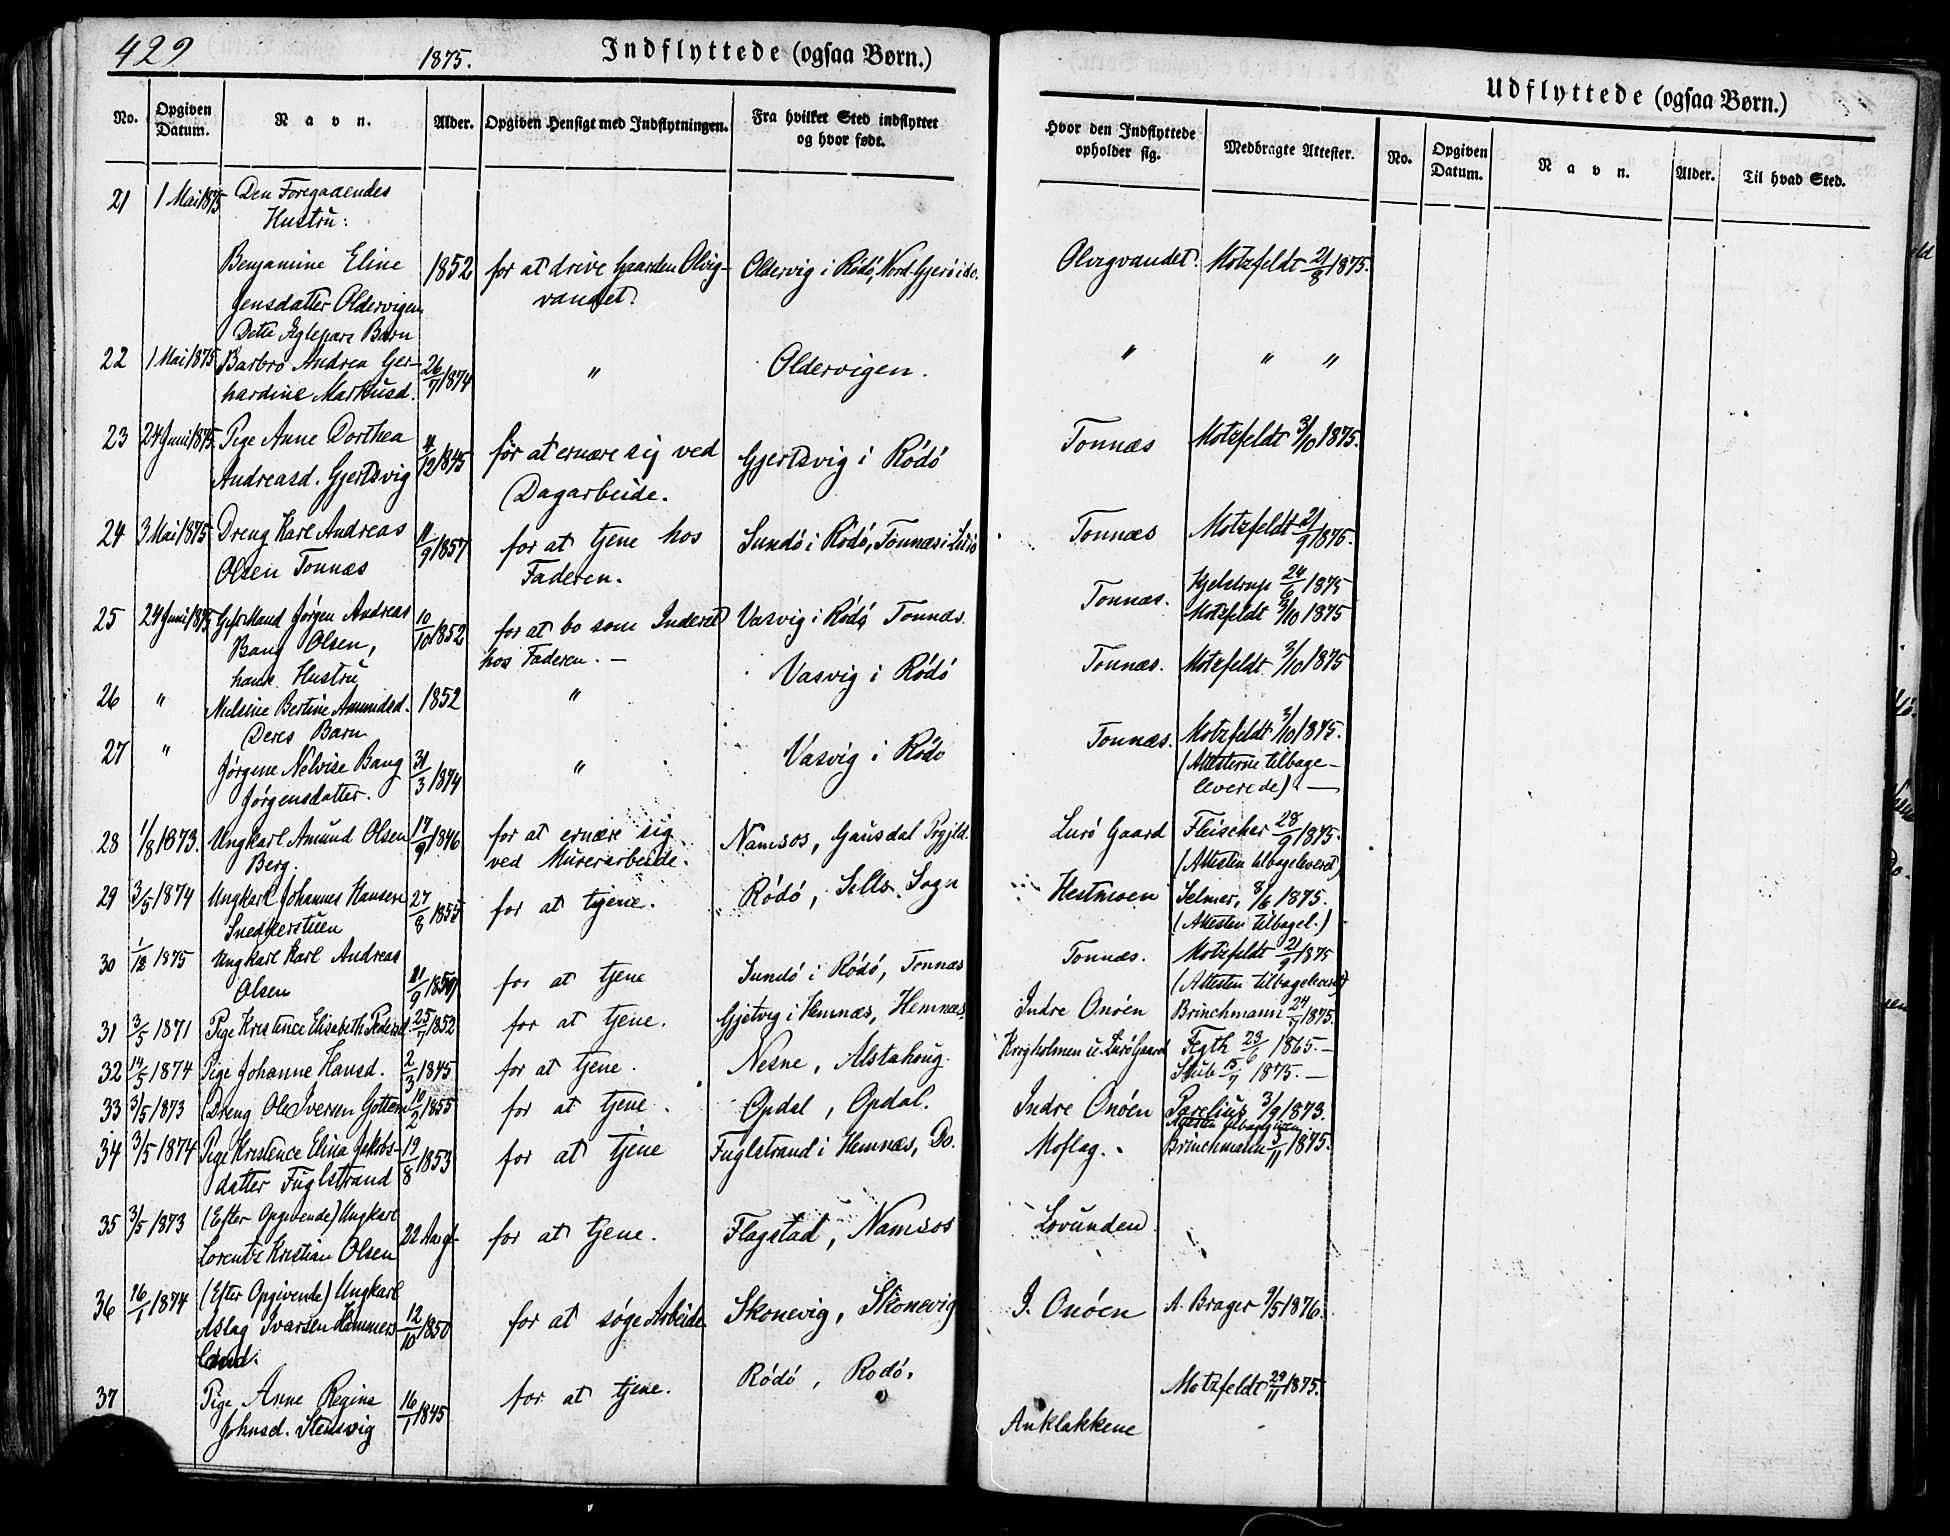 429
1875.
Indflyttede (ogsaa Børn.)
No.
Opgiven Datum.
Navn.
Alder.
Opgiven Hensigt med Indflytningen.
Fra hvilket Sted indflyttet og hvor født.
Hvor den Indflyttede opholder sig.
Medbragte Attester.
Udflyttede (ogsaa Børn.)
No.
Opgiven Datum.
Navn.
Alder.
Til hvad Sted.
21 1 Mai 1875 Den Foregaaendes
Hustru:
Benjamine Eline 1852 for at drive Gaarden Olvig- Oldervig i Rödö, Nord-Gjerö i do. Olvigvandet. Motzfeldt 21/8 1875.
Jensdatter Oldervigen vandet.
Dette Ægtepars Barn
22 1 Mai 1875 Barbro Andrea Ger- 26/7 1874 " Oldervigen. " " "
hardine Markusd.
23 24 Juni 1875 Pige Anne Dorthea 4/12 1845 for at ernære sig ved Gjertsvig i Rödö Tonnæs Motzfeldt 3/10 1875.
Andreasd. Gjertsvig Dagarbeide.
24 3 Mai 1875 Dreng Karl Andreas 11/9 1857 for at tjene hos Sundö i Rödö, Tonnæs i Lurö Tonnæs Motzfeldt 21/9 1875.
Olsen Tonnæs Faderen.
25 24 Juni 1875 Gift Mand Jörgen Andreas 10/10 1852 for at bo som Inderst Vasvig i Rödö, Tonnæs. Tonnæs. Hjelstrup 24/6 1875
Bang Olsen, hos Faderen. — Motzfeldt 3/10 1875
hans Hustru
26 " Nilsine Bertine Amundsd. 1852 " Vasvig i Rödö Tonnæs. Motzfeldt 3/10 1875
Deres Barn
27 " Jörgine Nelvise Bang 31/3 1874 " Vasvig i Rödö Tonnæs. Motzfeldt 3/10 1875.
Jörgensdatter. (Attesterne tilbage-
leverede). —
28 1/8 1873. Ungkarl Amund Olsen 17/9 1846 for at ernære sig Namsos, Gausdal Prgjld. Lurö Gaard Fleischer 28/9 1875.
Berg. ved Murerarbeide. (Attesten tilbageleveret)
29 3/5 1874 Ungkarl Johannes Hansen 27/8 1855 for at tjene. Rödö, Sells Sogn Hestmoen Selmer, 8/6 1875.
Snedkerstuen (Attesten tilbagel.)
30 1/12 1875 Ungkarl Karl Andreas 11/9 1857 for at tjene Sundö i Rödö, Tonnæs Tonnæs. Motzfeldt 21/9 1875
Olsen (Attesten tilbageleveret)
31 3/5 1871 Pige Kristence Elisabeth Pedersd. 25/7 1852 for at tjene. Gjetvig i Hemnæs, Hemnæs. Indre Onöen Brinchmann 24/7 1875.
32 14/5 1874 Pige Johanne Hansd. 2/3 1845 for at tjene. Nesne, Alstahoug. Krogholmen u. Lurö Gaard Fegth 23/6 1865. —
Stub 15/7 1875. —
33 3/5 1873 Dreng Ole Iversen Gottem 10/2 1855 for at tjene. Opdal, Opdal. Indre Onöen Parelius 3/9 1873.
Attesten tilbagegiven
34 3/5 1874 Pige Kristence Elina Jakobs- 17/8 1853 for at tjene Fuglstrand i Hemnæs, Do. Moflag. Brinchmann 3/11 1875.
datter Fuglstrand
35 3/5 1873 (Efter Opgivende) Ungkarl 22 Aar gl. for at tjene. Flagstad, Namsos Lovunden.
Lorents Kristian Olsen
36 16/1 1874 (Efter Opgivende) Ungkarl 12/10 1850 for at søge Arbeide. Skonevig, Skonevig I. Onöen A. Brager 9/5 1876.
Aslag Ivarsen Hammers-
land.
37 Pige Anne Regine 16/1 1845 for at tjene. Rödö, Rodö. Anklakkene Motzfeldt 29/11 1875.
Johnsd. Stensvig